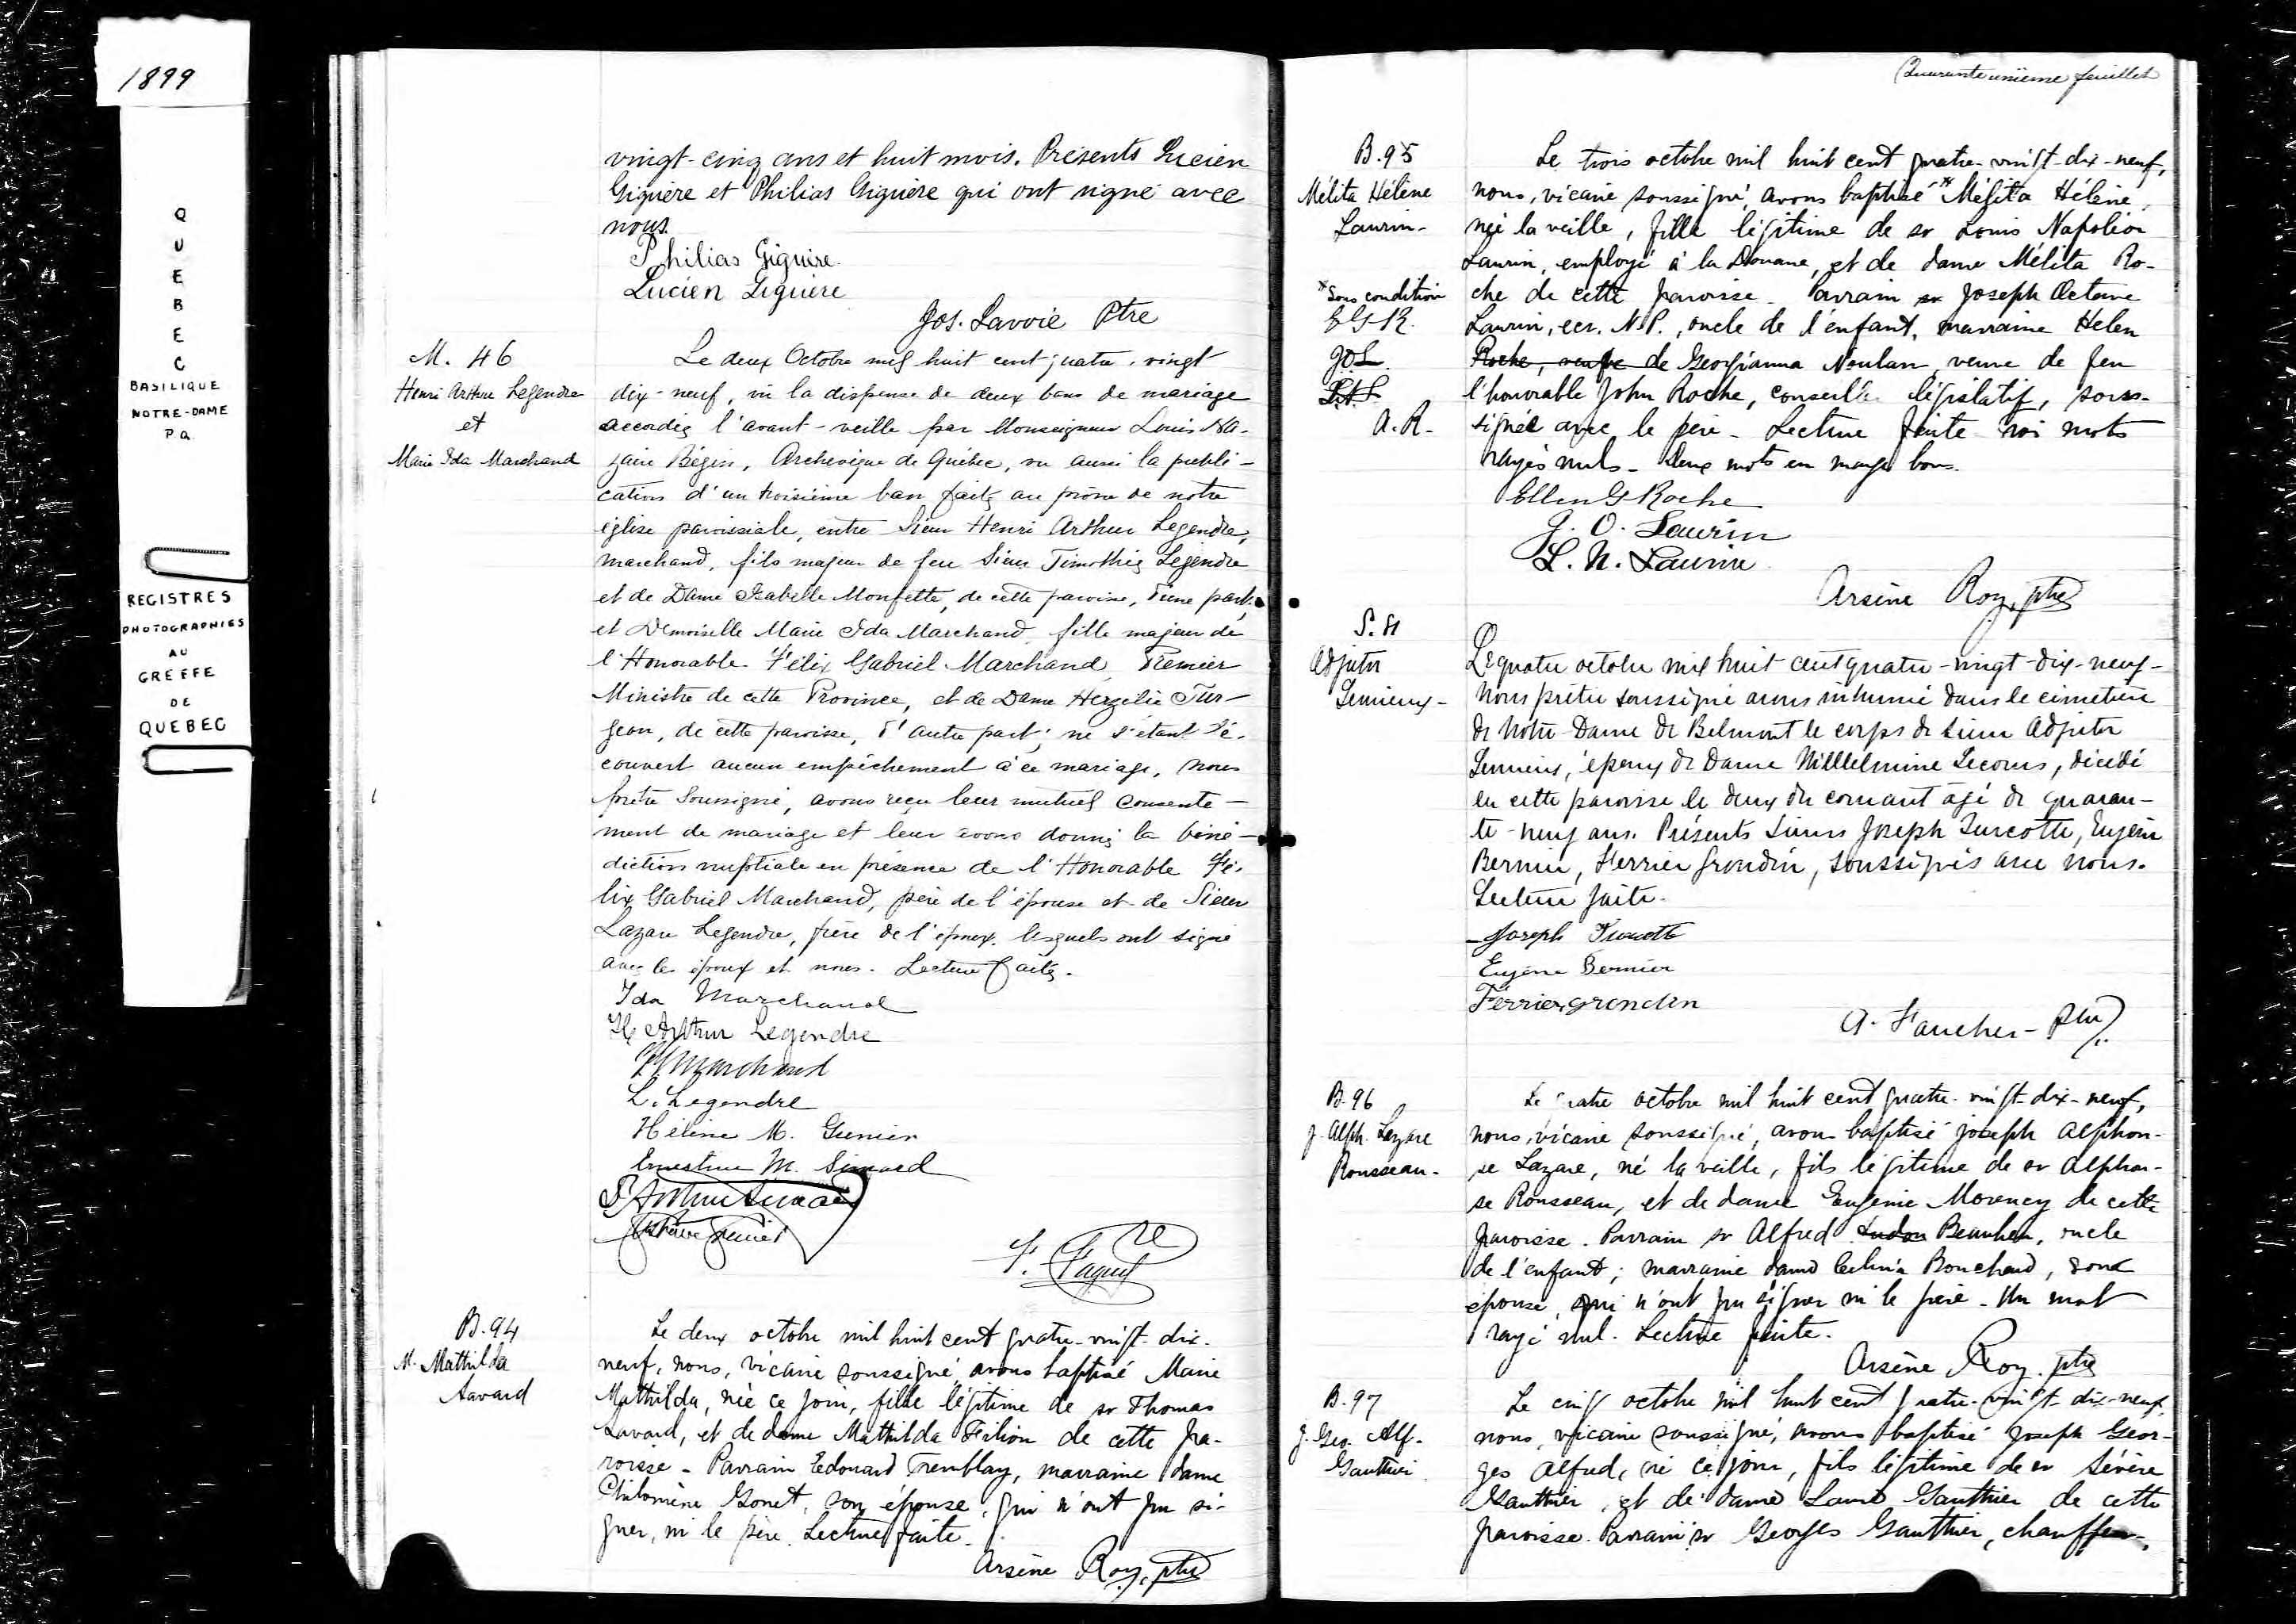 1899
QUEBEC
BASILIQUE
NOTRE-DAME
P.Q.
REGISTRES
PHOTOGRAPHIES
AU
GREFFE
DE
QUEBEC
vingt-cinq ans et huit mois. Présents Lucien
Giguère et Philias Giguère qui ont signé avec
nous.
Philias Giguère
Lucien Giguère
Jos. Lavoie Ptre
M. 46
Henri Arthur Legendre
et
Marie Ida Marchand
Le deux Octobre mil huit cent quatre-vingt
dix-neuf, vu la dispense de deux bans de mariage
accordée l'avant-veille par Monseigneur Louis Na-
zaire Bégin, Archevêque de Québec, vu aussi la publi-
cation d'un troisième ban faite au prône de notre
église paroissiale, entre Sieur Henri Arthur Legendre,
marchand, fils majeur de feu Sieur Timothée Legendre
et de Dame Isabelle Monfette, de cette paroisse, d'une part,
et Demoiselle Marie Ida Marchand, fille majeure de
l'Honorable Félix Gabriel Marchand, Premier
Ministre de cette Province, et de Dame Herzélie Tur-
geon, de cette paroisse, d'autre part; ne s'étant dé-
couvert aucun empêchement à ce mariage, nous
prêtre soussigné, avons reçu leur mutuel consente-
ment de mariage et leur avons donné la béné-
diction nuptiale en présence de l'Honorable Fé-
lix Gabriel Marchand, père de l'épouse et de Sieur
Lazare Legendre, frère de l'époux, lesquels ont signé
avec les époux et nous. Lecture faite.
Ida Marchand
H. Arthur Legendre
F. G. Marchand
L. Legendre
Hélène M. Grenier
Ernestine M. Simard
Arthur Simard
F. Faguy
B. 94
M. Mathilda
Savard
Le deux octobre mil huit cent quatre-vingt-dix-
neuf, nous, vicaire soussigné, avons baptisé Marie
Mathilda, née ce jour, fille légitime de sr Thomas
Savard, et de dame Mathilda Filion de cette pa-
roisse - Parrain Edouard Tremblay, marraine dame
Philomène Gonet, son épouse, qui n'ont pu si-
gner, ni le père. Lecture faite.
Arsène Roy, ptre
Quarante unième feuillet
B. 95
Mélita Hélène
Laurin-
*Sous condition
E G R.
J.O.L.
L.N.L.
A. R.
Le trois octobre mil huit cent quatre-vingt-dix-neuf,
nous, vicaire soussigné, avons baptisé* Mélita Hélène,
née la veille, fille légitime de sr Louis Napoléon
Laurin, employé à la Douane, et de dame Mélita Ro-
che de cette paroisse - Parrain sr Joseph Octave
Laurin, ecr. N.P., oncle de l'enfant, marraine Helen
Roche, veuve de Georgianna Noulan, veuve de feu
l'honorable John Roche, conseiller législatif, sous-
signée avec le père - Lecture faite - trois mots
rayés nuls - deux mots en marge bons.
Ellen G Roche
J. O. Laurin
L. N. Laurin
Arsène Roy, ptre
S. 51
Adjutor
Lemieux-
Le quatre octobre mil huit cent quatre-vingt-dix-neuf-
Nous prêtre soussigné avons inhumé dans le cimetière
de Notre-Dame de Belmont le corps de Sieur Adjutor
Lemieux, époux de Dame Willelmine Lecours, décédé
en cette paroisse le deux du courant agé de quaran-
te-neuf ans. Présents Sieurs Joseph Turcotte, Eugène
Bernier, Ferrier Grondin, soussignés avec nous.
Lecture faite.
Joseph Turcotte
Eugène Bernier
Ferrier Grondin
A. Faucher - Ptre
B. 96
J. Alph. Lazare
Rousseau-
Le quatre octobre mil huit cent quatre-vingt-dix-neuf,
nous, vicaire soussigné, avons baptisé Joseph Alphon-
se Lazare, né la veille, fils légitime de sr Alphon-
se Rousseau, et de dame Eugénie Morency de cette
paroisse. Parrain sr Alfred Beaulieu, oncle
de l'enfant; marraine dame Celina Bouchard, son
épouse, qui n'ont pu signer ni le père - Un mot
rayé nul. Lecture faite.
Arsène Roy, ptre
B. 97
J. Geo. Alf.
Gauthier
Le cinq octobre mil huit cent quatre-vingt-dix-neuf,
nous, vicaire soussigné, avons baptisé Joseph Geor-
ges Alfred, né ce jour, fils légitime de sr Sévère
Gauthier, et de dame Laura Gauthier de cette
paroisse. Parrain sr Georges Gauthier, chauffeur,